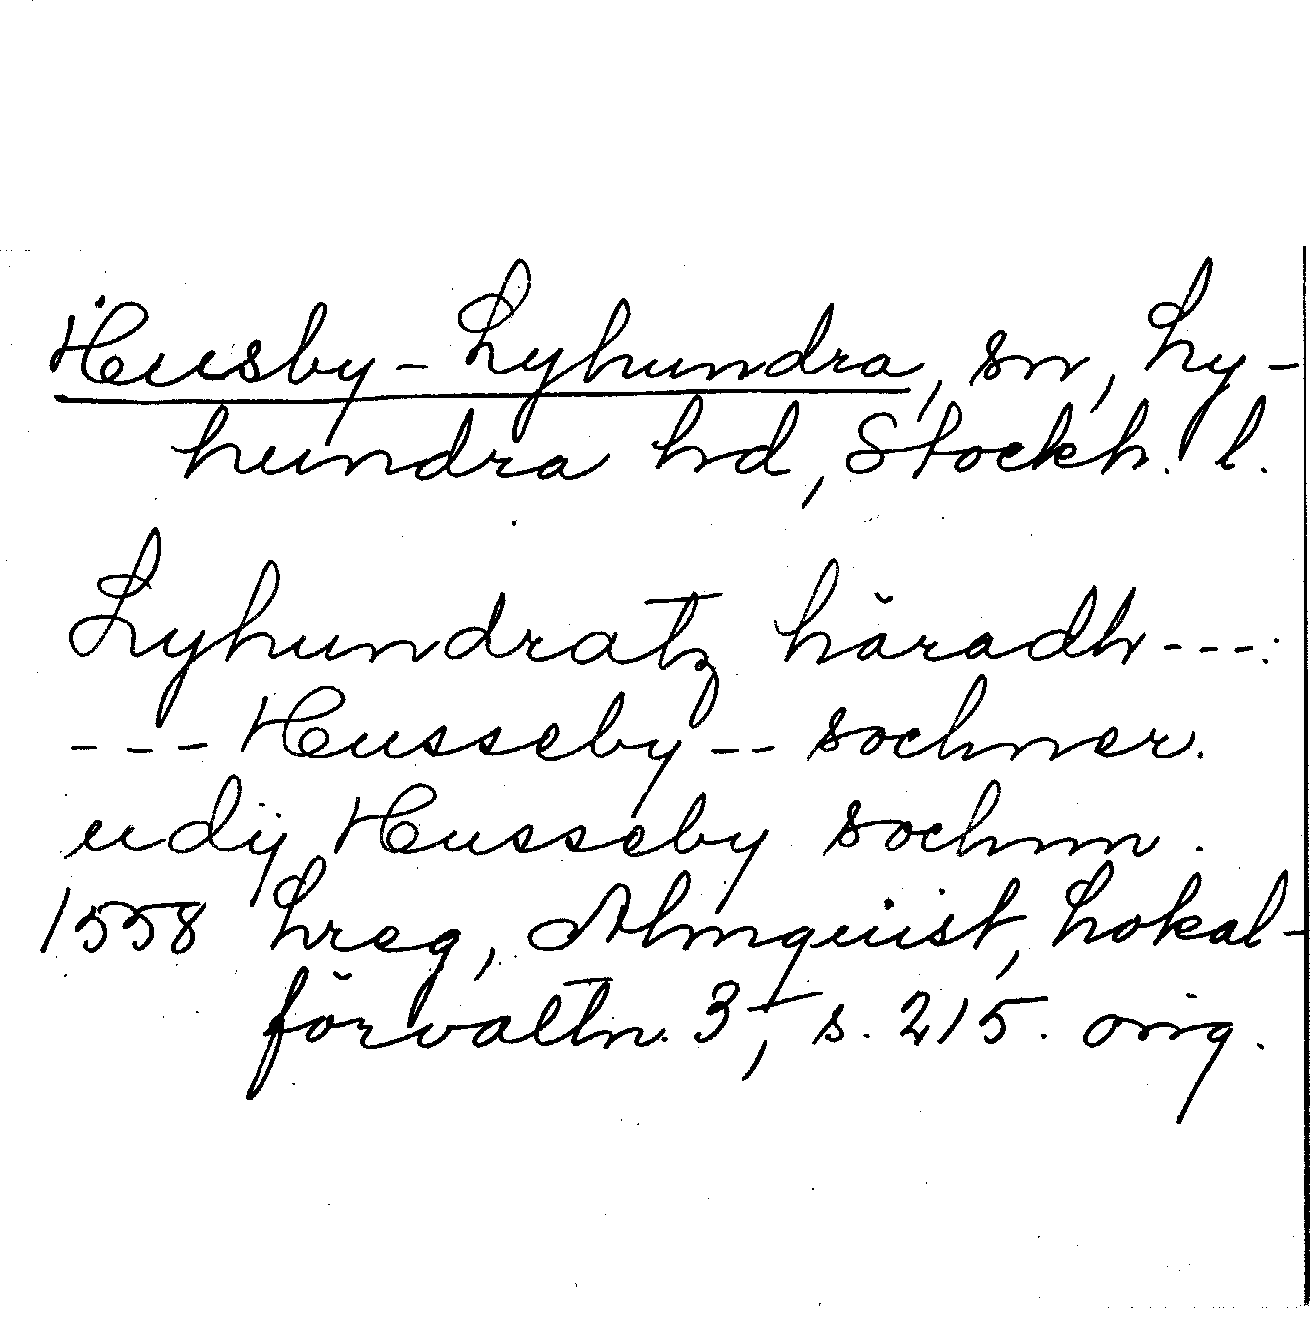 Husby-Lyhundra, sn, Ly-
hundra hd, Stockh. l.
Lyhundratz häradh ---:
--- Husseby -- sochner.
udij Husseby sochnn.
1558 Lreg, Almquist, Lokal-
förvaltn. 3, s. 215. orig.